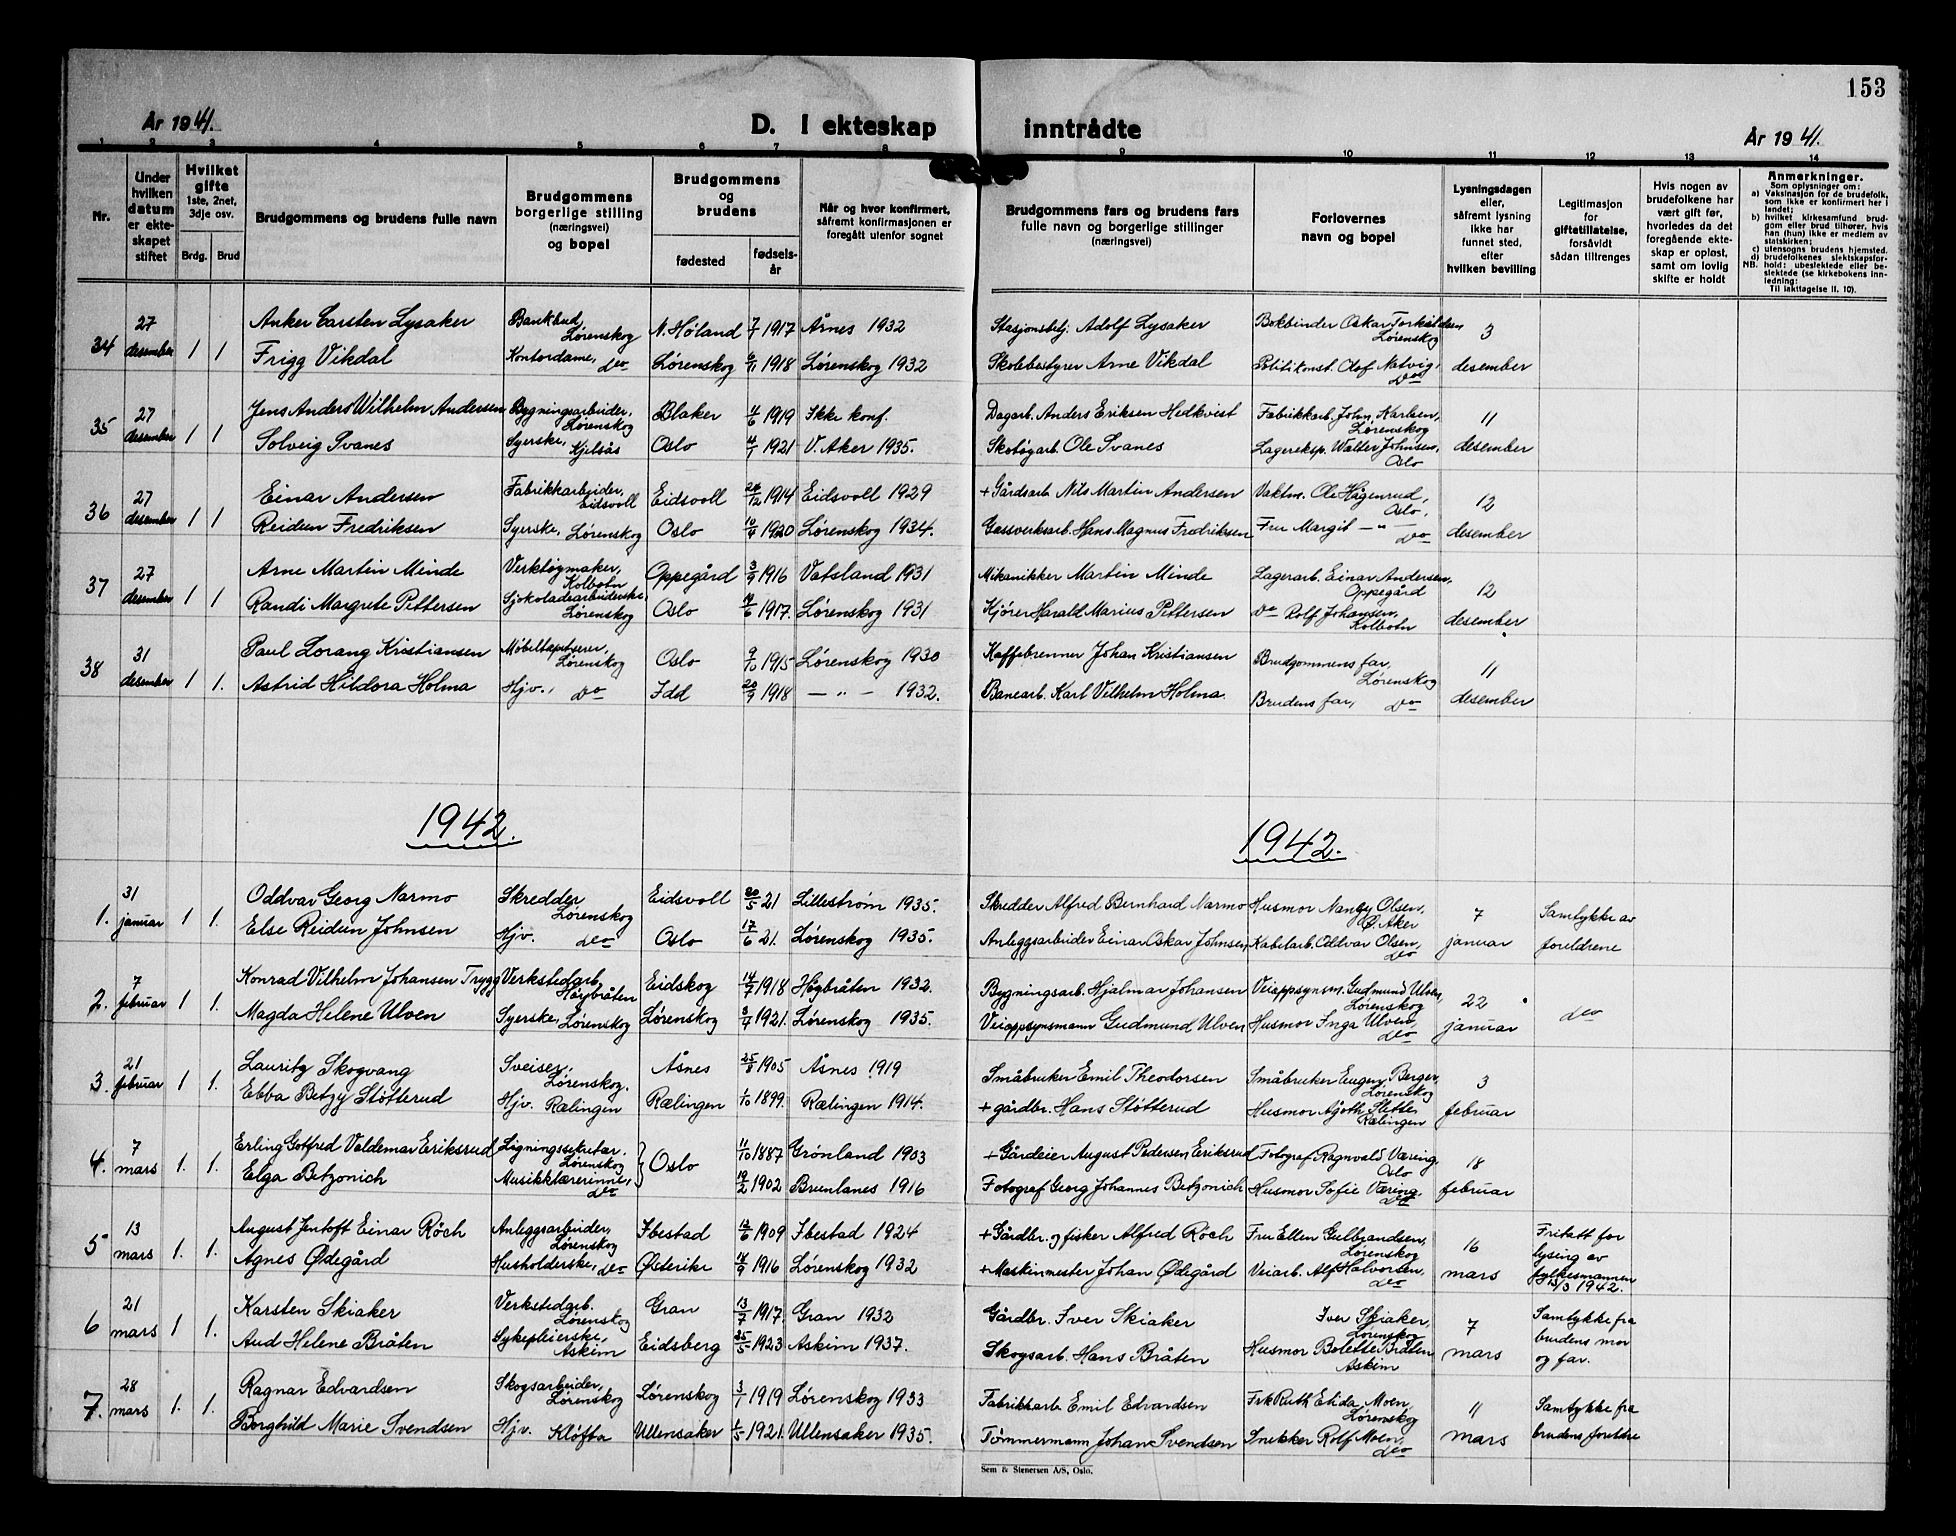 153
År 1941.
D. I ekteskap inntrådte
År 1941.
1 2 3 4 5 6 7 8 9 10 11 12 13 14
Nr.
Under hvilken datum er ekteskapet stiftet
Hvilket gifte 1ste, 2net, 3dje osv.
Brdg. Brud
Brudgommens og brudens fulle navn
Brudgommens borgerlige stilling (næringsvei) og bopel
Brudgommens og brudens
fødested
fødselsår
Når og hvor konfirmert, såfremt konfirmasjonen er foregått utenfor sognet
Brudgommens fars og brudens fars fulle navn og borgerlige stillinger (næringsvei)
Forlovernes navn og bopel
Lysningsdagen eller, såfremt lysning ikke har funnet sted, efter hvilken bevilling
Legitimasjon for giftetillatelse, forsåvidt sådan tiltrenges
Hvis nogen av brudefolkene har vært gift før, hvorledes da det foregående ekteskap er opløst, samt om lovlig skifte er holdt
Anmerkninger.
Som oplysninger om:
a) Vaksinasjon for de brudefolk, som ikke er konfirmert her i landet;
b) hvilket kirkesamfund brudgom eller brud tilhører, hvis han (hun) ikke er medlem av statskirken;
c) utensogns brudens hjemsted.
d) brudefolkenes slektskapsforhold: ubeslektede eller beslektede (se kirkebokens innledning:
NB. Til iakttagelse II. 10).
34 27 desember 1 1 Anker Carsten Lysaker Bankbud, Lørenskog N. Høland 7/7 1917 Årnes 1932 Stasjonsbetj. Adolf Lysaker Bokbinder Oskar Torkildsen Lørenskog 3 desember
Frigg Vikdal Kontordame, do Lørenskog 6/11 1918 Lørenskog 1932 Skolebestyrer Arne Vikdal Politikonst. Olof Natvig, do
35 27 desember 1 1 Jens Anders Wilhelm Andersen Bygningsarbeider, Lørenskog Blaker 4/6 1919 Ikke konf. Dagarb. Anders Eriksen Hedkvist Fabrikkarb. John Karlsen, Lørenskog 11 desember
Solveig Svanes Syerske, Kjelsås Oslo 4/1 1921 V. Aker 1935. Skotøyarb. Ole Svanes Lagereksp. Walter Johnsen, Oslo
36 27 desember 1 1 Einar Andersen Fabrikkarbeider, Eidsvoll Eidsvoll 26/12 1914 Eidsvoll 1929 + Gårdsarb. Nils Martin Andersen Vaktm. Ole Hågenrud, Oslo. 12 desember
Reidun Fredriksen Syerske, Lørenskog Oslo 10/4 1920 Lørenskog 1934. Gassverksarb. Hans Magnus Fredriksen Fru Margit — " — do
37 27 desember 1 1 Arne Martin Minde Verktøymaker, Kolbotn Oppegård 3/9 1916 Vatsland 1931 Mekanikker Martin Minde Lagerarb. Einar Andersen, Oppegård 12 desember
Randi Margrete Pettersen Sjokoladearbeiderske, Lørenskog Oslo 14/6 1917. Lørenskog 1931 Kjører Harald Marius Pettersen do Rolf Johansen, Kolbotn
38 31 desember 1 1. Paul Lorang Kristiansen Møbeltapetserer, Lørenskog Oslo 9/10 1915 Lørenskog 1930 Kaffebrenner Johan Kristiansen Brudgommens far, Lørenskog 11 desember
Astrid Hildora Holma Hjv., do Idd 20/9 1918 — " — 1932. Banearb. Karl Vilhelm Holma. Brudens far, do
1942. 1942.
1. 31 januar 1 1. Oddvar Georg Narmo Skredder Lørenskog Eidsvoll 20/5 21 Lillestrøm 1935. Skredder Alfred Bernhard Narmo Husmor Nancy Olsen, Ø. Aker 7 januar Samtykke av foreldrene
Else Reidun Johnsen Hjv. do Oslo 17/6 21. Lørenskog 1935. Anleggsarbeider Einar Oskar Johnsen, Kabelarb. Oddvar Olsen, do
2. 7 februar 1 1. Konrad Vilhelm Johansen Trygg Verkstedarb. Høybråten Eidskog 14/7 1918 Høybråten 1932. Bygningsarb. Hjalmar Johansen Veioppsynsm. Gudmund Ulven, Lørenskog 22 januar do
Magda Helene Ulven Syerske, Lørenskog Lørenskog 3/4 1921. Lørenskog 1935. Veioppsynsmann Gudmund Ulven Husmor Inga Ulven, do
3. 21 februar 1 1. Lauritz Skogvang Sveiser, Lørenskog. Åsnes 25/8 1905 Åsnes 1919 Småbruker Emil Theodorsen Småbruker Eugen Berger, Lørenskog 3 februar
Ebba Betzy Støtterud Hjv. Rælingen Rælingen 1/10 1899. Rælingen 1914. + gårdbr. Hans Støtterud Husmor Agoth Slette Rælingen
4. 7 mars 1. 1. Erling Gotfred Valdemar Eriksrud Ligningssekretær. Lørenskog Oslo 11/10 1887 Grønland 1903 + Gårdeier August Pedersen Eriksrud Fotograf Ragnvald Væring, Oslo 18 februar
Elga Betzonich Musikklærerinne, do 19/2 1902 Brunlanes 1916 Fotograf Georg Johannes Betzonich Husmor Sofie Væring. do
5 13 mars 1. 1. August Jentoft Einar Röch Anleggsarbeider, Lørenskog Ibestad 12/6 1909 Ibestad 1924 + Gårdbr. og fisker Alfred Röch Fru Ellen Gulbrandsen, Lørenskog 16 mars Fritatt for lysing av fylkesmannen 13/3 1942.
Agnes Ødegård Husholderske, do Østerike 14/9 1916 Lørenskog 1932 + Maskinmester Johan Ødegård Veiarb. Alf Halvorsen, do
6 21 mars 1 1. Karsten Skiaker Verkstedarb. Lørenskog Gran 13/7 1917. Gran 1932 Gårdbr. Iver Skiaker Iver Skiaker, Lørenskog 7 mars Samtykke fra brudens mor og far.
Aud Helene Bråten Sykepleierske, Askim Eidsberg 25/5 1923 Askim 1937. Skogsarb. Hans Bråten Husmor Bolette Bråten Askim
7. 28 mars 1. 1. Ragnar Edvardsen Skogsarbeider, Lørenskog Lørenskog 3/1 1919 Lørenskog 1933 Fabrikkarb Emil Edvardsen Frk Ruth Elida Moen, Lørenskog 11 mars Samtykke fra brudens foreldre
Borghild Marie Svendsen Hjv. Kløfta Ullensaker 6/5 1921. Ullensaker 1935. Tømmermann Johan Svendsen Snekker Rolf Moen, do
Sem & Stenersen A/S, Oslo.